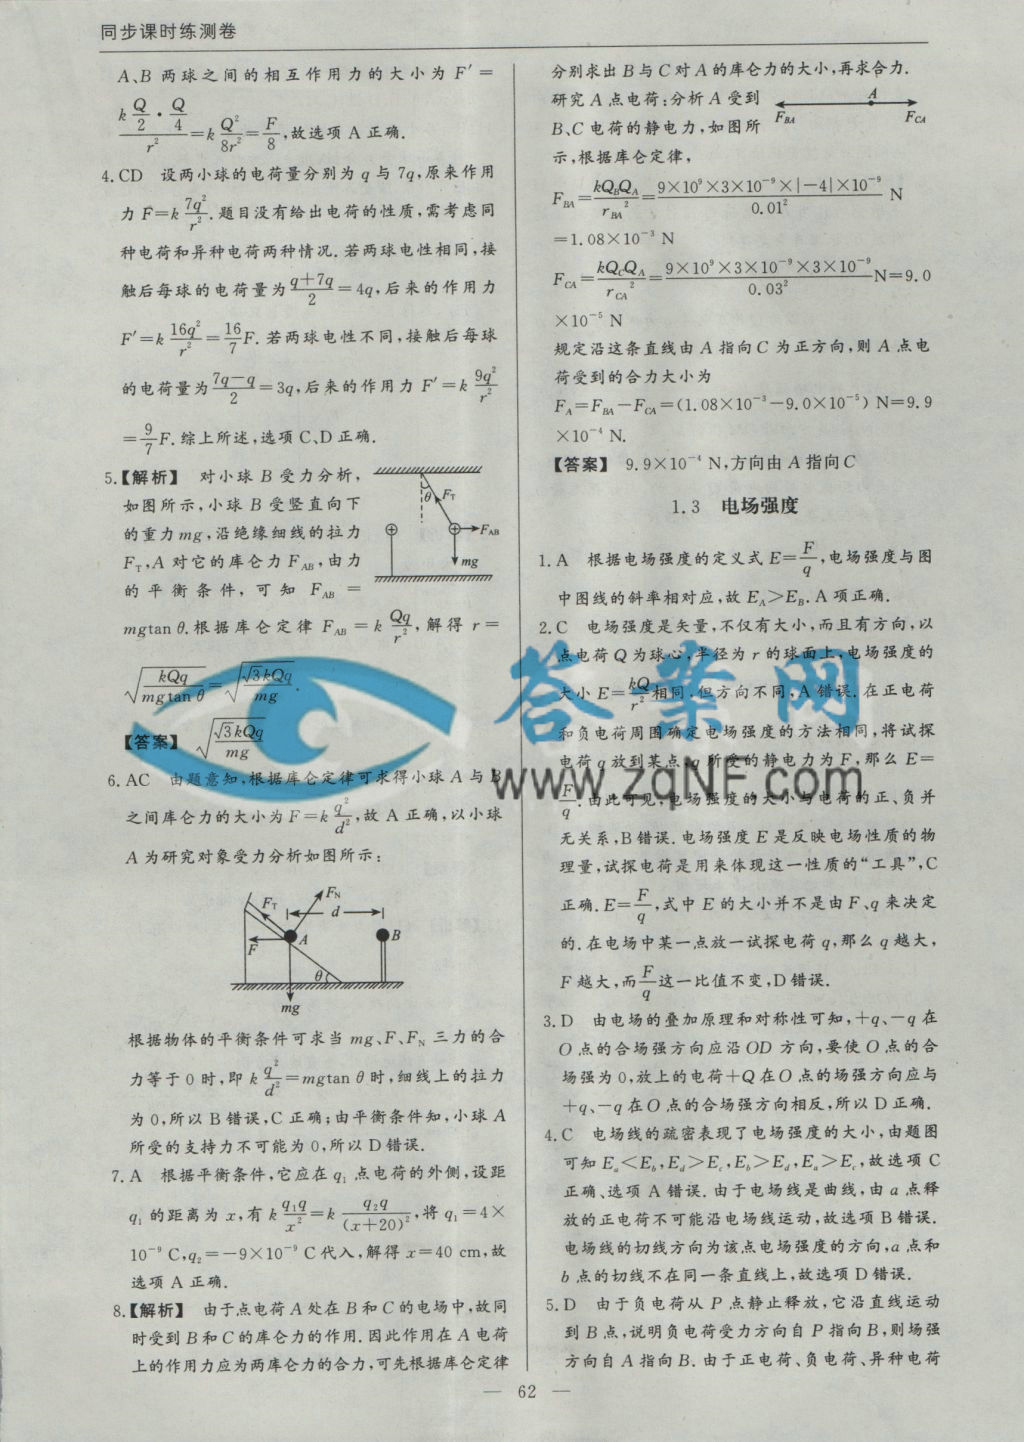 同步课时练测卷
A、B 两球之间的相互作用力的大小为 F′=
k(Q/2·Q/4)/r²=kQ²/8r²=F/8,故选项 A 正确.
4.CD 设两小球的电荷量分别为 q 与 7q,原来作用
力 F=k7q²/r².题目没有给出电荷的性质,需考虑同
种电荷和异种电荷两种情况.若两球电性相同,接
触后每球的电荷量为(q+7q)/2=4q,后来的作用力
F′=k16q²/r²=16/7F.若两球电性不同,接触后每球
的电荷量为(7q−q)/2=3q,后来的作用力 F′=k9q²/r²
=9/7F.综上所述,选项 C、D 正确.
5.【解析】 对小球 B 受力分析,
如图所示,小球 B 受竖直向下
的重力 mg,沿绝缘细线的拉力
F_T,A 对它的库仑力 F_AB,由力
的平衡条件,可知 F_AB=
mgtan θ.根据库仑定律 F_AB=kQq/r²,解得 r=
√(kQq/mgtan θ)=√(√3kQq/mg).
【答案】 √(√3kQq/mg)
θ F_T
F_AB
mg
6.AC 由题意知,根据库仑定律可求得小球 A 与 B
之间库仑力的大小为 F=kq²/d²,故 A 正确,以小球
A 为研究对象受力分析如图所示:
F_T F_N
d
F A B
θ
mg
根据物体的平衡条件可求当 mg、F、F_N 三力的合
力等于 0 时,即 kq²/d²=mgtan θ 时,细线上的拉力
为 0,所以 B 错误,C 正确;由平衡条件知,小球 A
所受的支持力不可能为 0,所以 D 错误.
7.A 根据平衡条件,它应在 q₁ 点电荷的外侧,设距
q₁ 的距离为 x,有 kq₁q/x²=kq₂q/(x+20)²,将 q₁=4×
10⁻⁹ C,q₂=−9×10⁻⁹ C 代入,解得 x=40 cm,故
选项 A 正确.
8.【解析】 由于点电荷 A 处在 B 和 C 的电场中,故同
时受到 B 和 C 的库仑力的作用.因此作用在 A 电荷
上的作用力应为两库仑力的合力,可先根据库仑定律
分别求出 B 与 C 对 A 的库仑力的大小,再求合力.
研究 A 点电荷:分析 A 受到
B、C 电荷的静电力,如图所
示,根据库仑定律,
A
F_BA F_CA
F_BA=kQ_BQ_A/r_BA²=9×10⁹×3×10⁻⁹×|−4|×10⁻⁹/0.01² N
=1.08×10⁻³ N
F_CA=kQ_CQ_A/r_CA²=9×10⁹×3×10⁻⁹×3×10⁻⁹/0.03² N=9.0
×10⁻⁵ N
规定沿这条直线由 A 指向 C 为正方向,则 A 点电
荷受到的合力大小为
F_A=F_BA−F_CA=(1.08×10⁻³−9.0×10⁻⁵) N=9.9
×10⁻⁴ N.
【答案】 9.9×10⁻⁴ N,方向由 A 指向 C
1.3 电场强度
1.A 根据电场强度的定义式 E=F/q,电场强度与图
中图线的斜率相对应,故 E_A>E_B.A 项正确.
2.C 电场强度是矢量,不仅有大小,而且有方向,以
点电荷 Q 为球心,半径为 r 的球面上,电场强度的
大小 E=kQ/r²相同,但方向不同,A 错误.在正电荷
和负电荷周围确定电场强度的方法相同,将试探
电荷 q 放到某点,q 所受的静电力为 F,那么 E=
F/q.由此可见,电场强度的大小与电荷的正、负并
无关系,B 错误.电场强度 E 是反映电场性质的物
理量,试探电荷是用来体现这一性质的“工具”,C
正确.E=F/q,式中 E 的大小并不是由 F、q 来决定
的.在电场中某一点放一试探电荷 q,那么 q 越大,
F 越大,而F/q这一比值不变,D 错误.
3.D 由电场的叠加原理和对称性可知,+q、−q 在
O 点的合场强方向应沿 OD 方向,要使 O 点的合
场强为 0,放上的电荷+Q 在 O 点的场强方向应与
+q、−q 在 O 点的合场强方向相反,所以 D 正确.
4.C 电场线的疏密表现了电场强度的大小,由题图
可知 E_a<E_b,E_d>E_c,E_b>E_d,E_a>E_c,故选项 C
正确、选项 A 错误.由于电场线是曲线,由 a 点释
放的正电荷不可能沿电场线运动,故选项 B 错误.
电场线的切线方向为该点电场强度的方向,a 点和
b 点的切线不在同一条直线上,故选项 D 错误.
5.D 由于负电荷从 P 点静止释放,它沿直线运动
到 B 点,说明负电荷受力方向自 P 指向 B,则场强
方向自 A 指向 B.由于正电荷、负电荷、异种电荷
答案网
www.zqNF.com
— 62 —